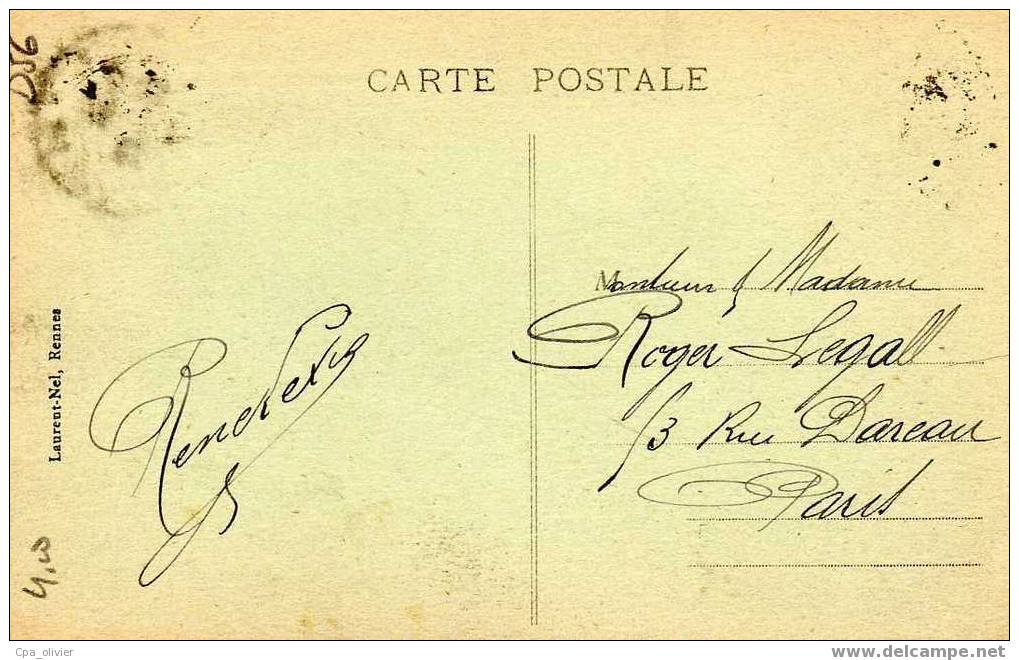 D56
CARTE POSTALE
Laurent-Nel, Rennes
4,00
Monsieur & Madame
Roger Legall
13 Rue Dareau
Paris
Cpa_olivier
www.delcampe.net